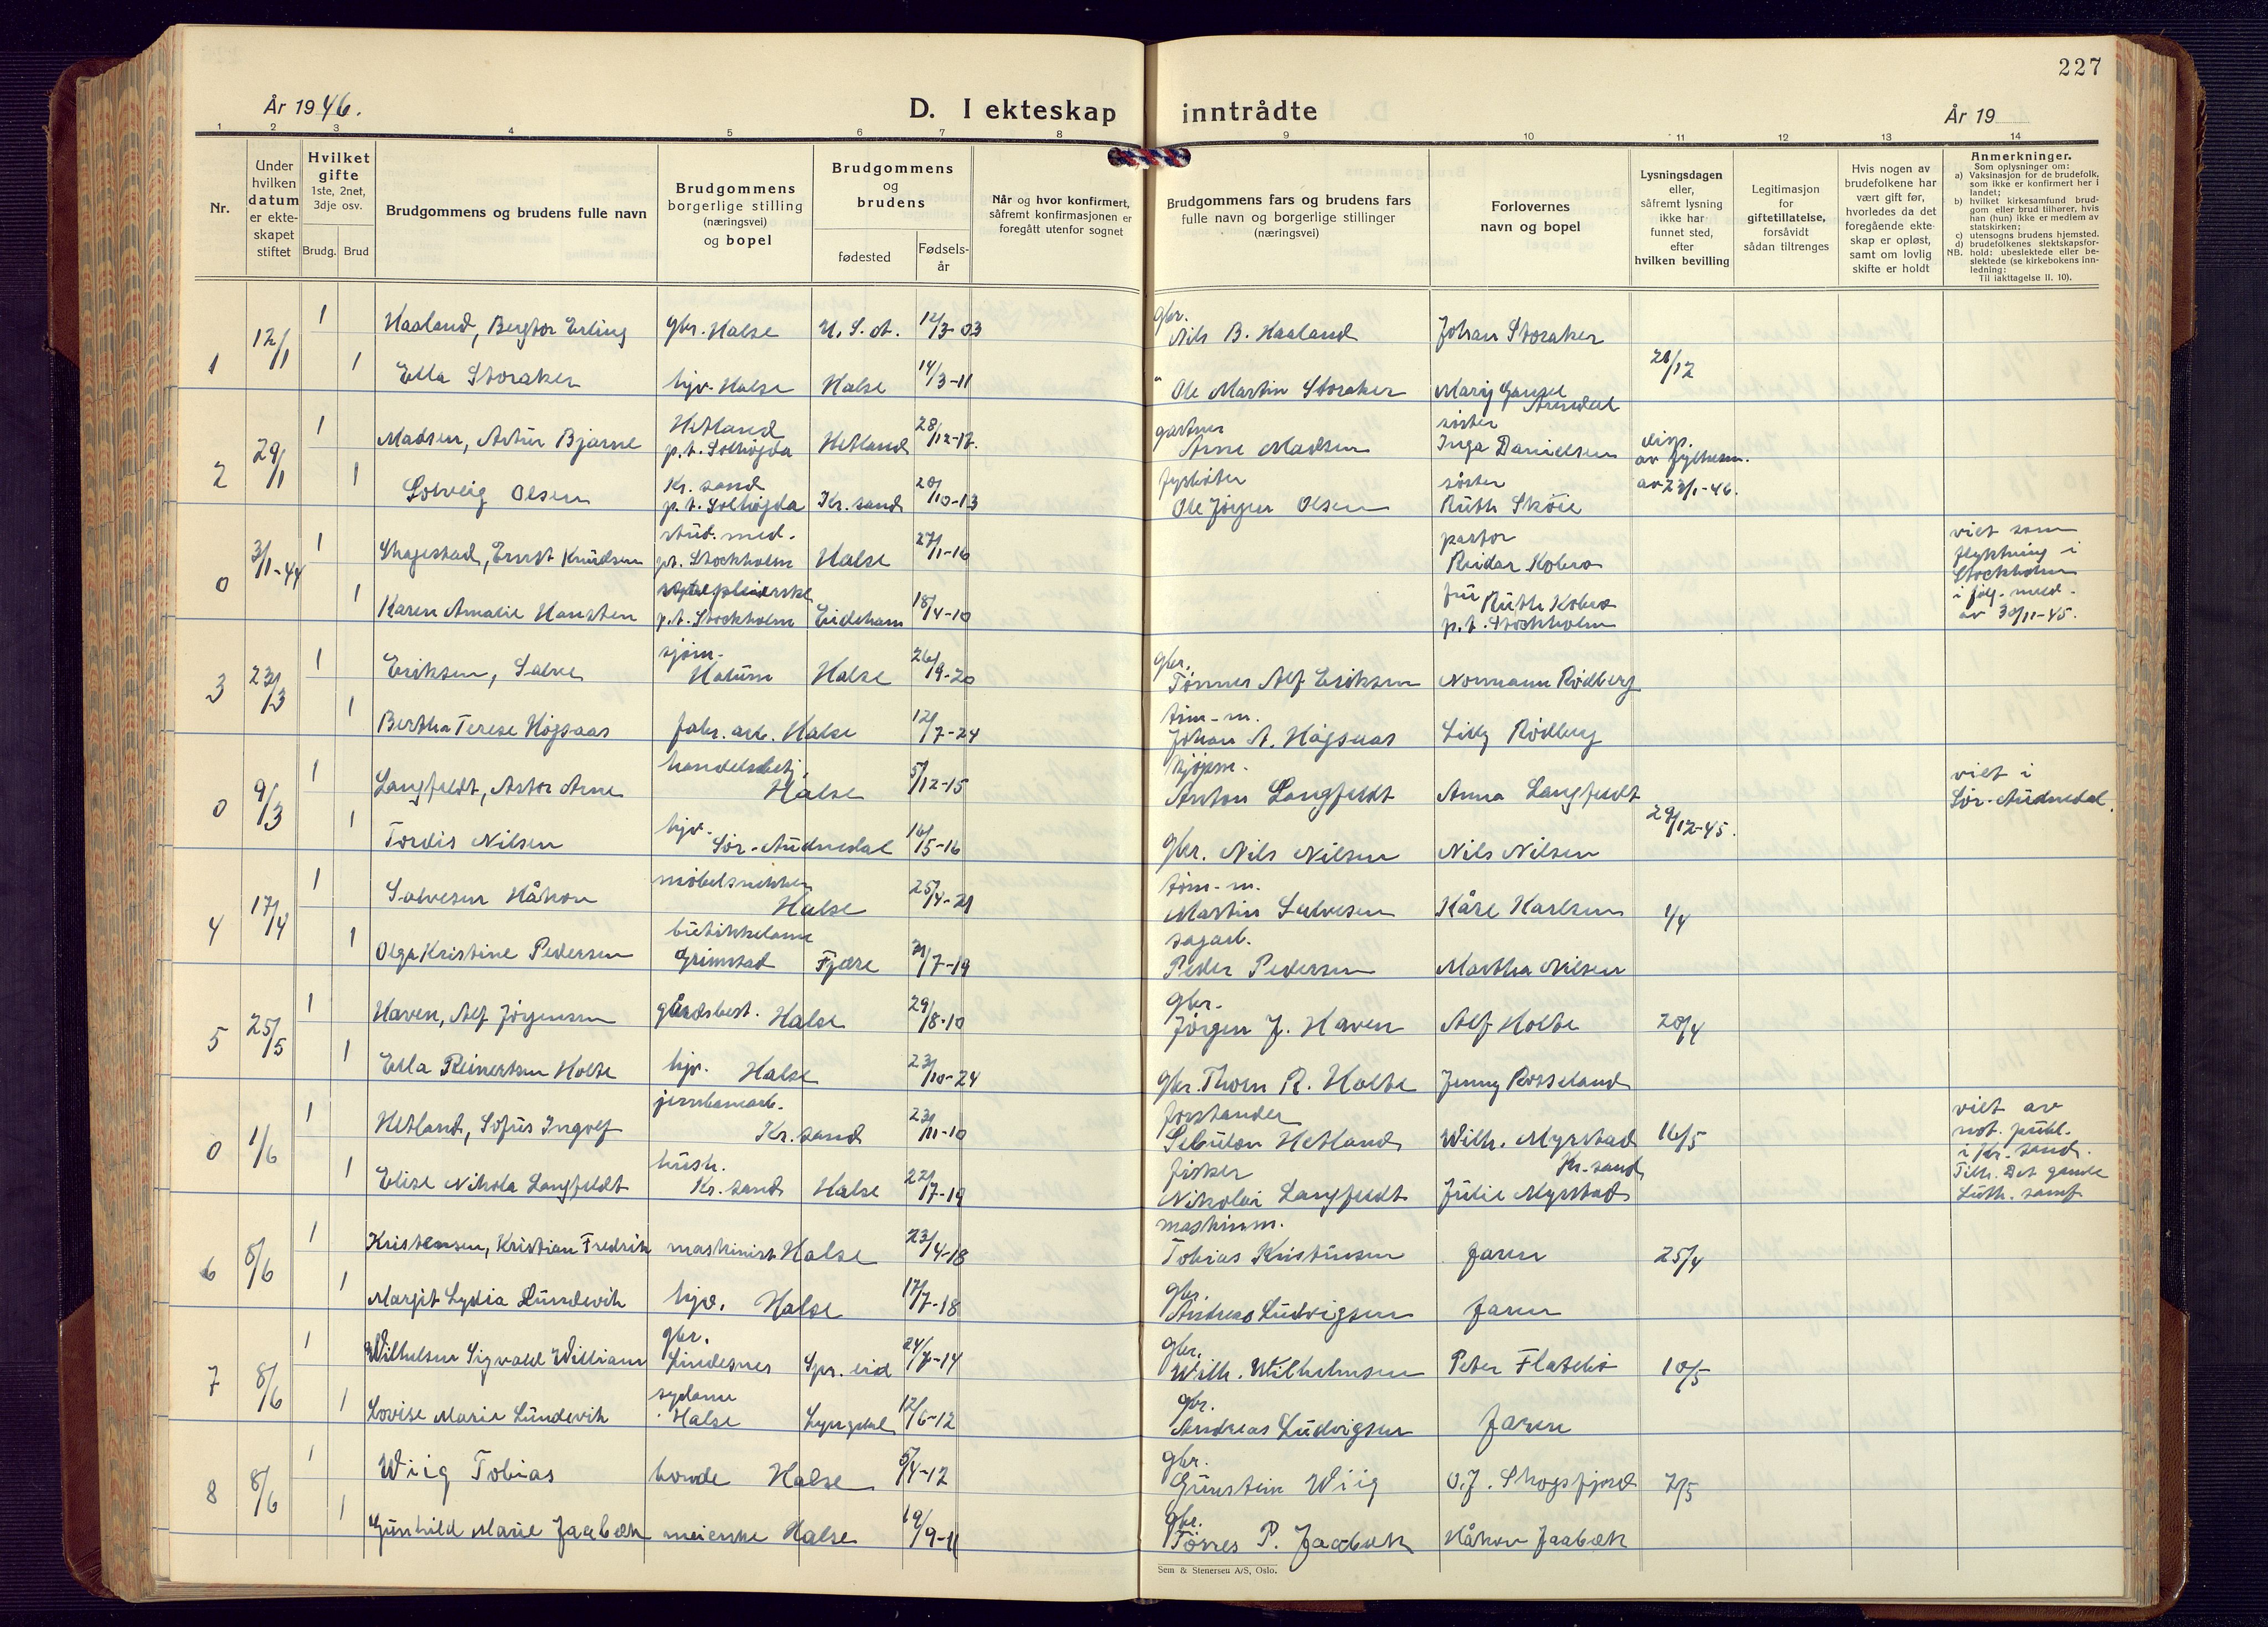 227
År 1946.
D. I ekteskap inntrådte
År 19
1 2 3 4 5 6 7 8 9 10 11 12 13 14
Nr.
Under hvilken datum er ekte-skapet stiftet
Hvilket gifte 1ste, 2net, 3dje osv.
Brudg. Brud
Brudgommens og brudens fulle navn
Brudgommens borgerlige stilling (næringsvei) og bopel
Brudgommens og brudens
fødested
Fødsels-år
Når og hvor konfirmert, såfremt konfirmasjonen er foregått utenfor sognet
Brudgommens fars og brudens fars fulle navn og borgerlige stillinger (næringsvei)
Forlovernes navn og bopel
Lysningsdagen eller, såfremt lysning ikke har funnet sted, efter hvilken bevilling
Legitimasjon for giftetillatelse, forsåvidt sådan tiltrenges
Hvis nogen av brudefolkene har vært gift før, hvorledes da det foregående ekte-skap er opløst, samt om lovlig skifte er holdt
Anmerkninger.
Som oplysninger om:
a) Vaksinasjon for de brudefolk, som ikke er konfirmert her i landet;
b) hvilket kirkesamfund brud-gom eller brud tilhører, hvis han (hun) ikke er medlem av statskirken;
c) utensogns brudens hjemsted.
d) brudefolkenes slektskapsfor-hold: ubeslektede eller be-slektede (se kirkebokens inn-ledning:
NB. Til iakttagelse II. 10).
1 12/1 1 Haaland, Bergtor Erling gbr. Halse U. S. A. 12/3-03 gbr. Nils B. Haaland Johan Storaker
1 Ella Storaker hjv. Halse Halse 14/3-11 " Ole Martin Storaker Mary Arendal 21/12
2 29/1 1 Madsen, Artur Bjarne Hetland p.t. Solhøgda Hetland 28/12-17. gartner Arne Madsen søster Inga Danielsen disp. av fylkesm. av 23/1-46.
1 Solveig Olsen Kr. sand p.t. Solhøgda Kr. sand 20/10-13 fyrbøter Ole Jørgen Olsen søster Ruth Skøie
0 3/1-44 1 Skagestad, Ernst Knudsen stud. med. p.t. Stockholm Halse 27/1-16 pastor Reidar Kobro viet som flyktning i Stockholm i følg. med. av 30/11-45.
1 Karen Amalie Hansten sykepleierske p.t. Stockholm Eideham 18/4-10 fru Ruth Kobro p.t. Stockholm
3 23/3 1 Eriksen, Salve sjøm. Halse 26/9-20 gbr. Tønnes Alf Eriksen Normann Rødberg
1 Bertha Terese Høgsaas fabr. arb. Halse 12/7-24 tøm-m. Johan A. Høgsaas Lilly Rødberg
0 9/3 1 Langfeldt, Astor Arne handelsbetj. Halse 5/12-15 kjøpm. Anton Langfeldt Anna Langfeldt 29/12-45. viet i Sør-Audnedal.
1 Tordis Nilsen hjv. Sør-Audnedal 16/5-16 gbr. Nils Nilsen Nils Nilsen
4 17/4 1 Salvesen Håkon møbelsnikker Halse 25/4-21 tøm-m. Martin Salvesen Kåre Karlsen 1/4
1 Olga Kristine Pedersen butikkdame Grimstad Fjære 21/7-19 sagarb. Peder Pedersen Martha Nilsen
5 25/5 1 Haven, Alf Jørgensen gårdsbest. Halse 29/8-10 gbr. Jørgen J. Haven Alf Holte 20/4
1 Ella Reinertsen Holte hjv. Halse 23/10-24 gbr. Thom R. Holte Jenny Rosseland
0 1/6 1 Hetland, Sofus Ingolf jernbanearb. Kr. sand 23/11-10 forstander Sebulon Hetland Wilh. Myrstad Kr. sand 16/5 viet av not. publ. i Kr. sand. Tilh. Det gamle Luth. samf
1 Elise Nikola Langfeldt hush. Kr. sand Halse 22/7-19 fisker Nikolai Langfeldt Julie Myrstad
6 8/6 1 Kristensen, Kristian Fredrik maskinist Halse 23/4-18 maskinm. Tobias Kristensen faren 25/4
1 Margit Lydia Lundevik hjv. Halse 17/7-18 gbr. Andreas Ludvigsen faren
7 8/6 1 Wilhelmsen Sigvald William gbr. Lindesnes Spr. eid 24/7-14 gbr. Wilh. Wilhelmsen Peter Flatebø 10/5
1 Lovise Marie Lundevik sydame Halse Lyngdal 12/6-12 gbr. Andreas Ludvigsen faren
8 8/6 1 Wiig Tobias bonde Halse 5/4-12 gbr. Gunstein Wiig O.J. Skogsfjord 2/5
1 Gunhild Marie Jaabæk meierske Halse 19/9-11 gbr. Tørres P. Jaabæk Håkon Jaabæk
Sem & Stenersen A/S, Oslo.